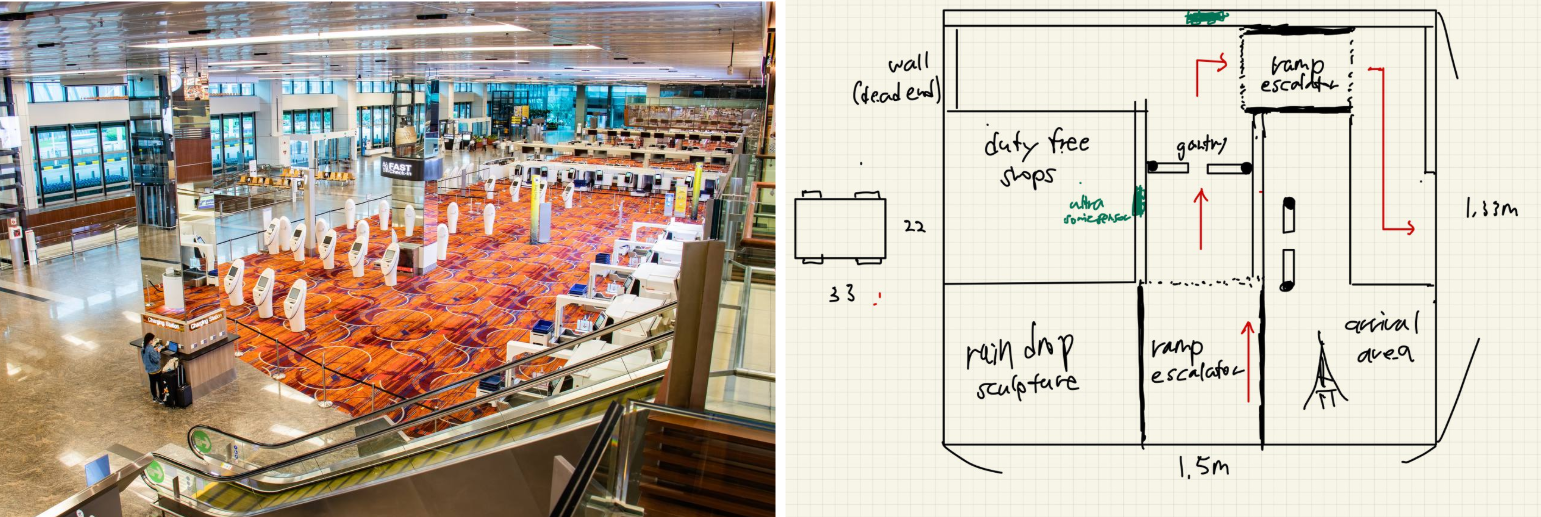 FAST
CHECK-IN
Charging Station
Charging Station
wall
(dead end)
ramp
escalator
duty free
shops
gantry
ultra
sonic sensor
22
33
1.33m
rain drop
sculpture
ramp
escalator
arrival
area
1.5m